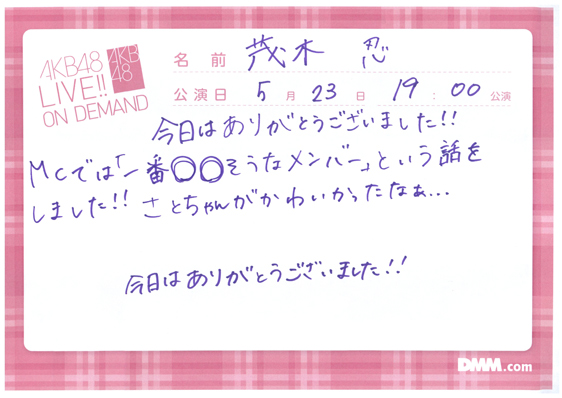 AKB48
LIVE!!
ON DEMAND
AKB
48
名前 茂木 忍
公演日 5月23日 19:00公演
今日はありがとうございました!!
MCでは「一番〇〇そうなメンバー」という話を
しました!! さとちゃんがかわいかったなぁ...
今日はありがとうございました!!
DMM.com